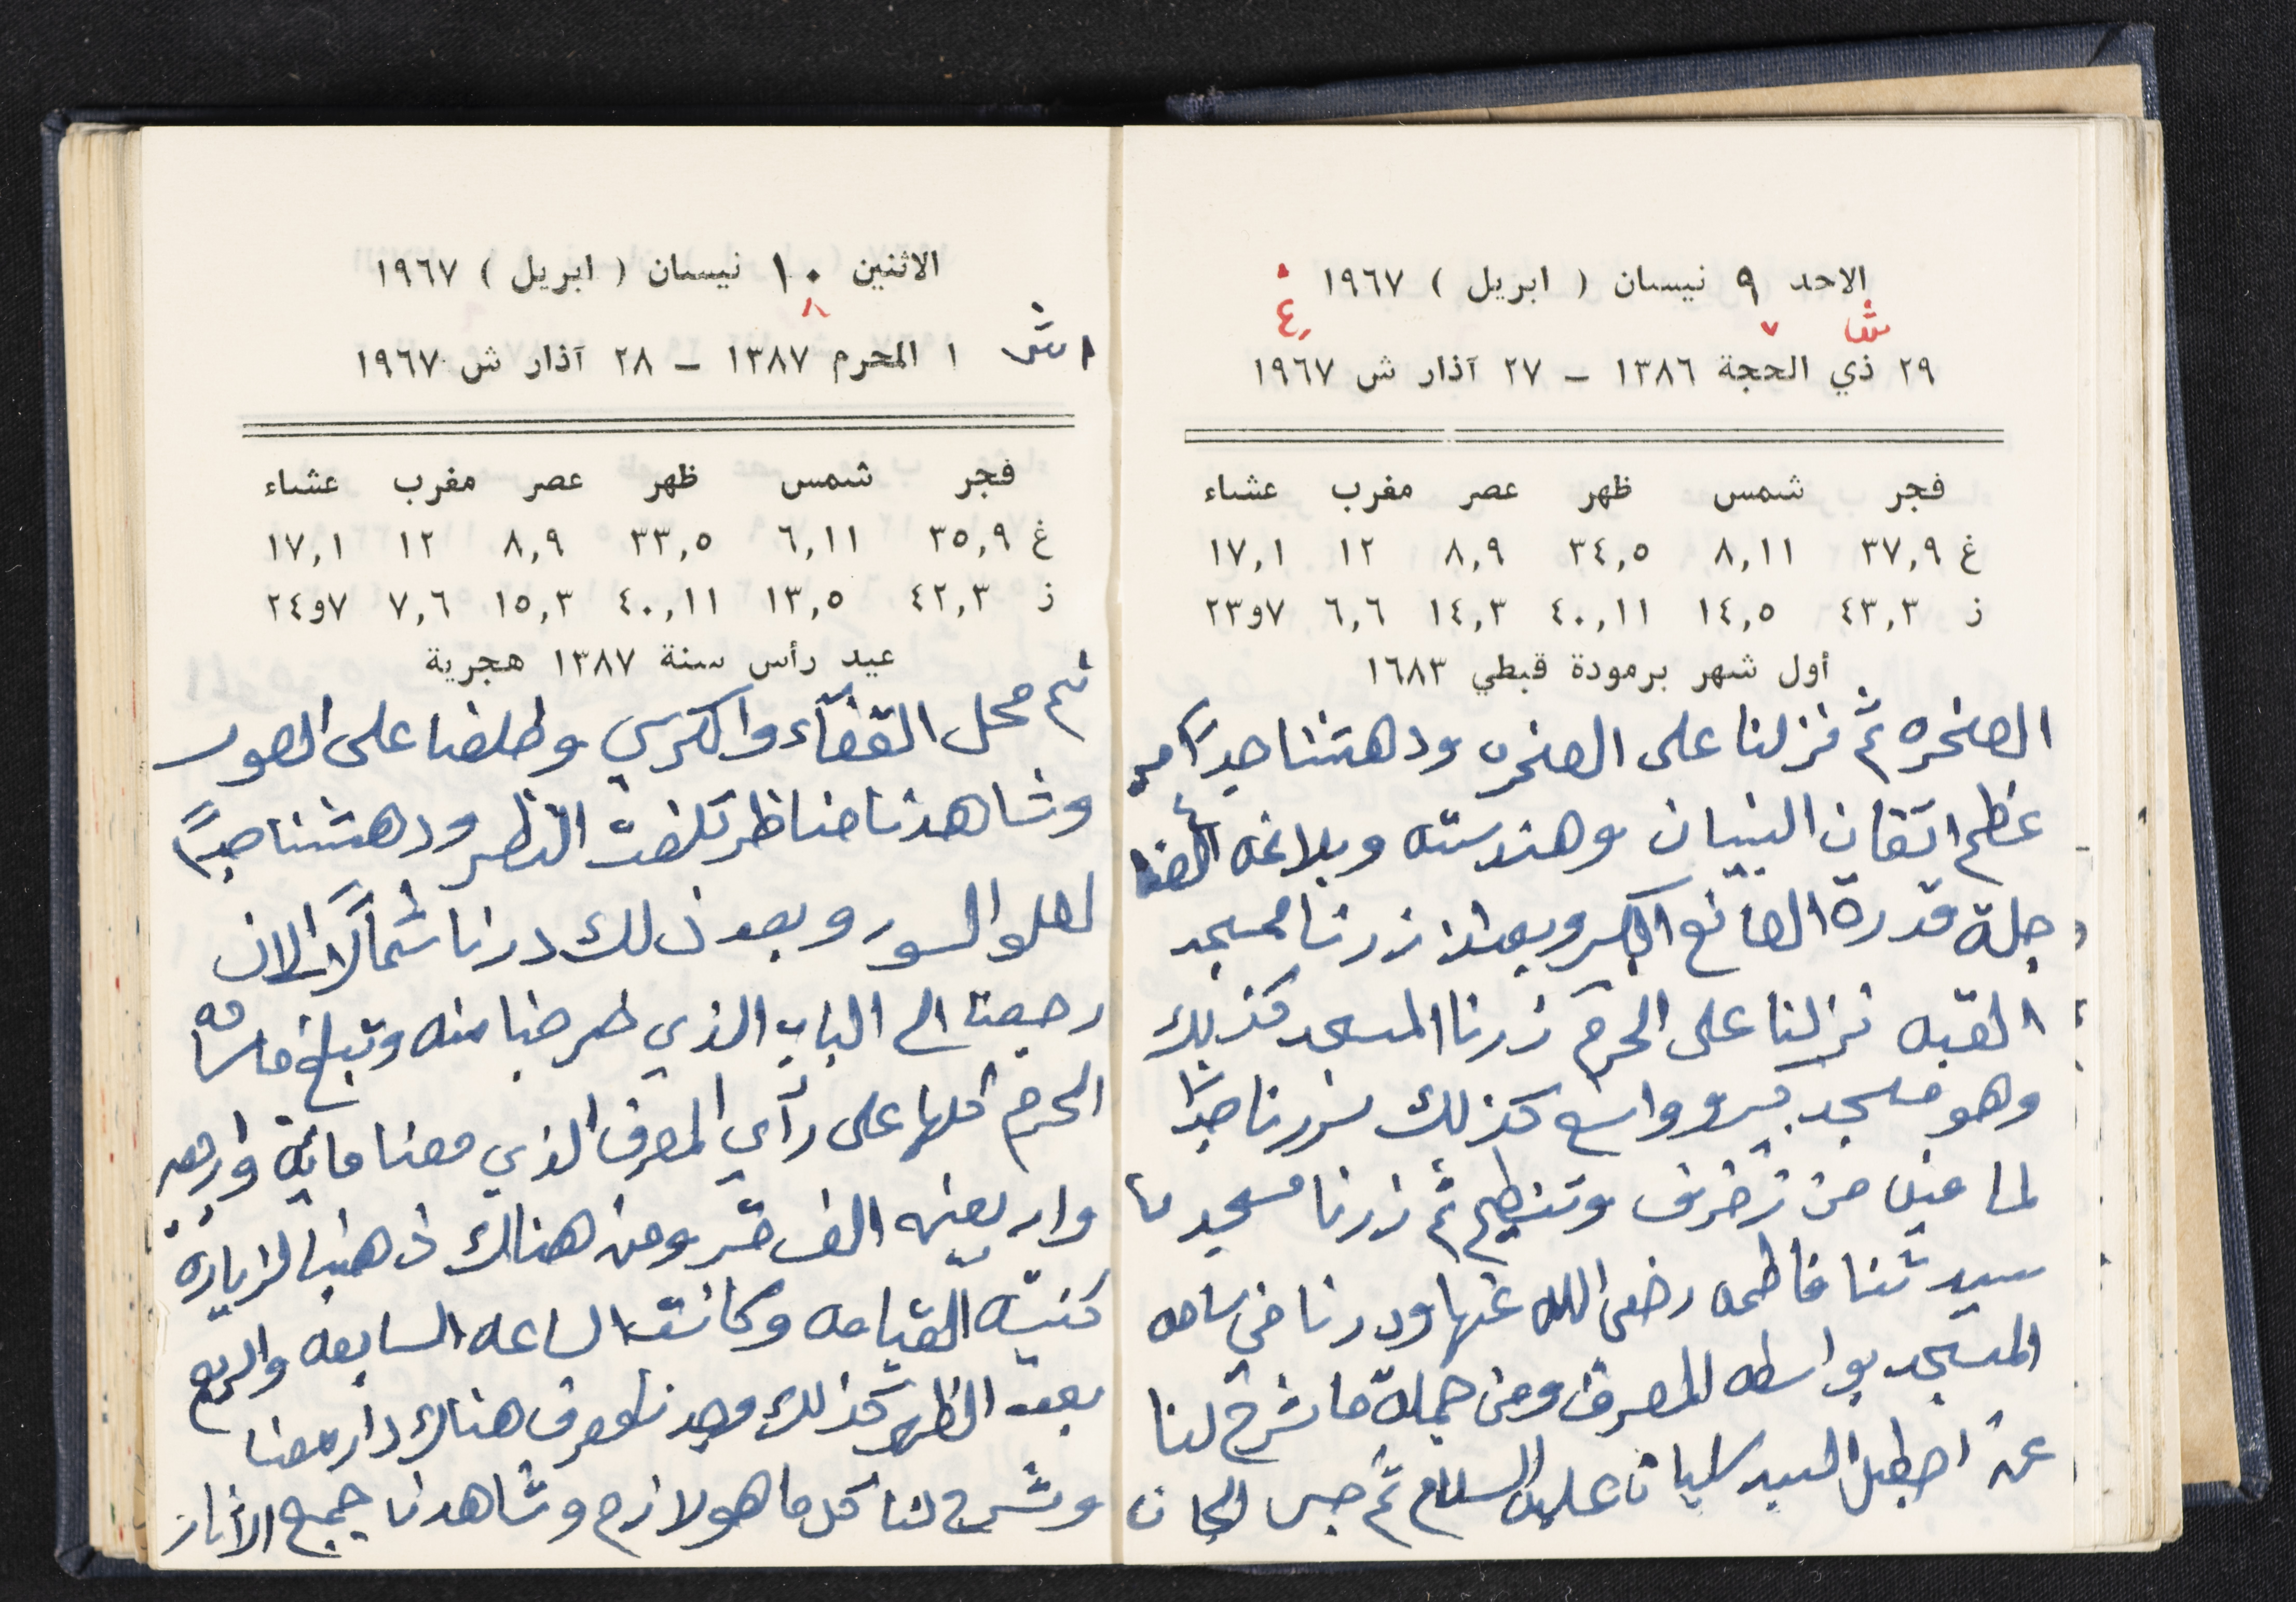 الاحد ٩ نيسان ( ابريل ) ١٩٦٧
ش ٧ ٤
٢٩ ذي الحجة ١٣٨٦ – ٢٧ آذار ش ١٩٦٧
فجر شمس ظهر عصر مغرب عشاء
غ ٣٧,٩ ٨,١١ ٣٤,٥ ٨,٩ ١٢ ١٧,١
ز ٤٣,٣ ١٤,٥ ٤٠,١١ ١٤,٣ ٦,٦ ٧و٢٣
أول شهر برمودة قبطي ١٦٨٣
الصخره ثم نزلنا على الصخره ودهشنا جداً من
عظم اتقان البنيان وهندسته وبلاغه
جلة قدرة الصانع الاكبر وبعدئذ زرنا مسجد
القبه نزلنا على الحرم زرنا المسجد كذلك
وهو مسجد كبير وواسع كذلك سررنا جداً
لما فيه من زخرف وتنظيم ثم زرنا مسجد
سيدتنا فاطمه رضى الله عنها ودرنا في ساحه
المسجد بواسطه المعرف ومن جملة ما شرح لنا
عن اصطبل السيد سليمان عليه السلام ثم حبس الجان
الاثنين ١٠ نيسان ( ابريل ) ١٩٦٧
٨
١ ش ١ المحرم ١٣٨٧ – ٢٨ آذار ش ١٩٦٧
فجر شمس ظهر عصر مغرب عشاء
غ ٣٥,٩ ٦,١١ ٣٣,٥ ٨,٩ ١٢ ١٧,١
ز ٤٢,٣ ١٣,٥ ٤٠,١١ ١٥,٣ ٧,٦ ٧و٢٤
عيد رأس سنة ١٣٨٧ هجرية
ثم محل القضآء والكرسي وطلعنا على الصور
وشاهدنا مناظر تلفت النظر ودهشنا جداً
لعلو السور وبعد ذلك درنا شمالاً الان
رجعنا الى الباب الذي خرجنا منه وتبلغ مساحه
الحرم كلها على رأي المعرف الذي معنا مائة واربعه
واربعين الف متر ومن هناك ذهبنا لزيارة
كنيسة القيامه وكانت الساعه السابعه والربع
بعد الظهر كذلك وجدنا معرف هناك دار معنا
وشرح لنا كل ما هو لازم وشاهدنا جميع الاثار